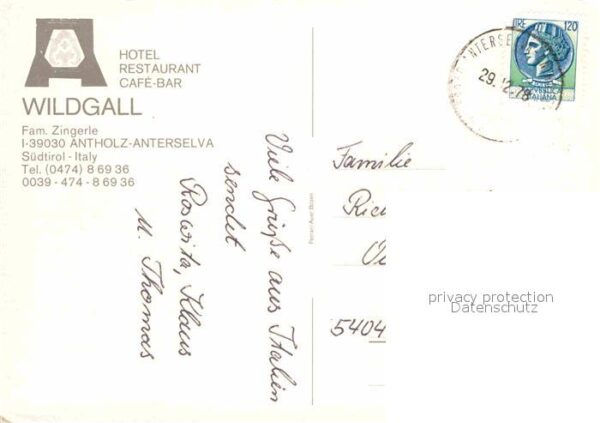 HOTEL
RESTAURANT
CAFÉ-BAR
WILDGALL
Fam. Zingerle
I-39030 ANTHOLZ-ANTERSELVA
Südtirol - Italy
Tel. (0474) 8 69 36
0039 - 474 - 8 69 36
Viele Grüße aus Italien
sendet
Roswita, Klaus
u. Thomas
LIRE 120
29.12.78
Familie
5404
privacy protection
Datenschutz